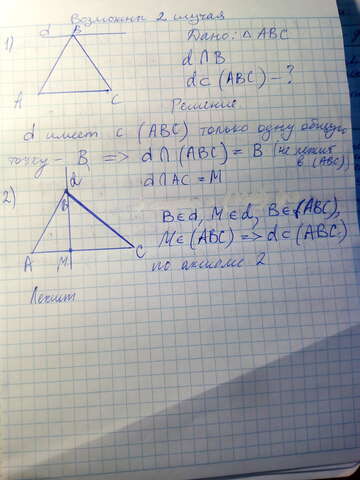 Возможны 2 случая
1) d B Дано: △ ABC
d ∩ B
A C d ⊂ (ABC) - ?
Решение
d имеет с (ABC) только одну общую
точку - B, => d ∩ (ABC) = B (не лежит
в (ABC))
d ∩ AC = M
2) d
B B ∈ d, M ∈ d, B ∈ (ABC),
A M C M ∈ (ABC) => d ⊂ (ABC)
по аксиоме 2
Лежит